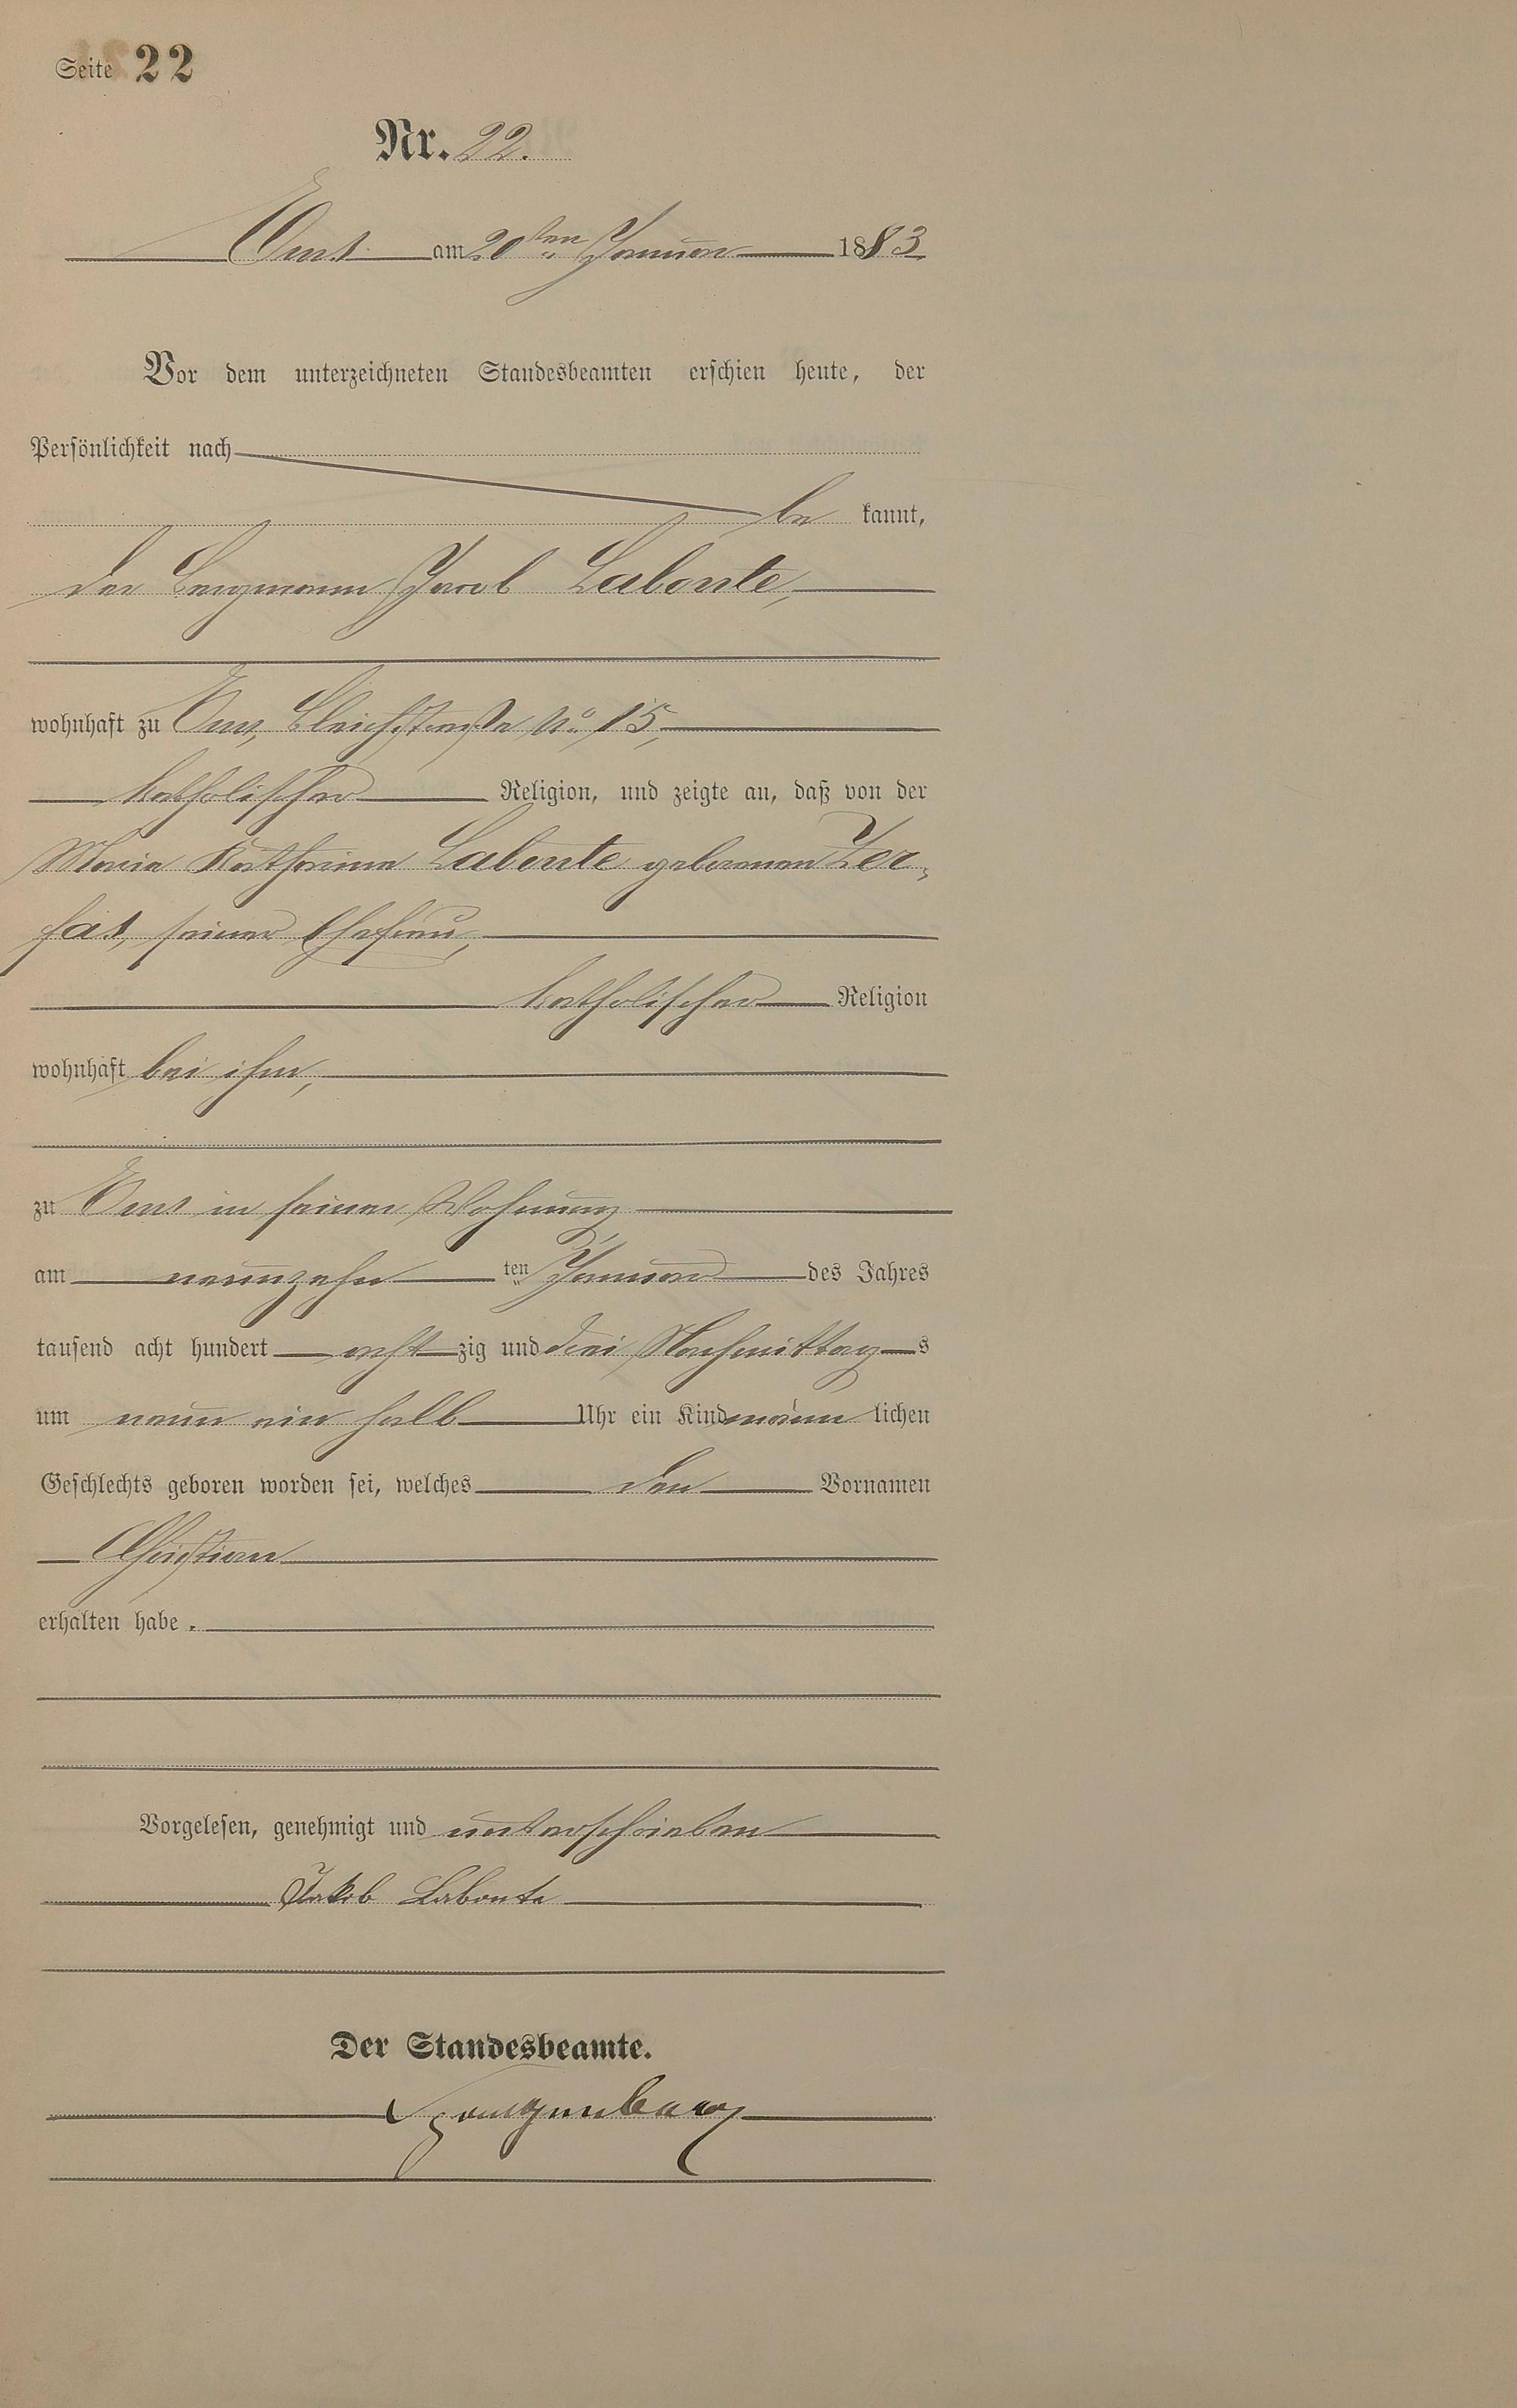 Seite 22
Nr. 22.
Ems am 20ten Januar 1883
Vor dem unterzeichneten Standesbeamten erschien heute, der
Persönlichkeit nach
be kannt,
der Bergmann Jacob Labonte,
wohnhaft zu Ems, Bleichstraße No. 15,
katholischer Religion, und zeigte an, daß von der
Maria Katharina Labonte geborenen Zer-
fas, seiner Ehefrau,
katholischer Religion
wohnhaft bei ihm,
zu Ems in seiner Wohnung
am neunzehn ten Januar des Jahres
tausend acht hundert acht zig und drei Nachmittag s
um neun ein halb Uhr ein Kind männ lichen
Geschlechts geboren worden sei, welches den Vornamen
Christian
erhalten habe.
Vorgelesen, genehmigt und unterschrieben
Jakob Labonte
Der Standesbeamte.